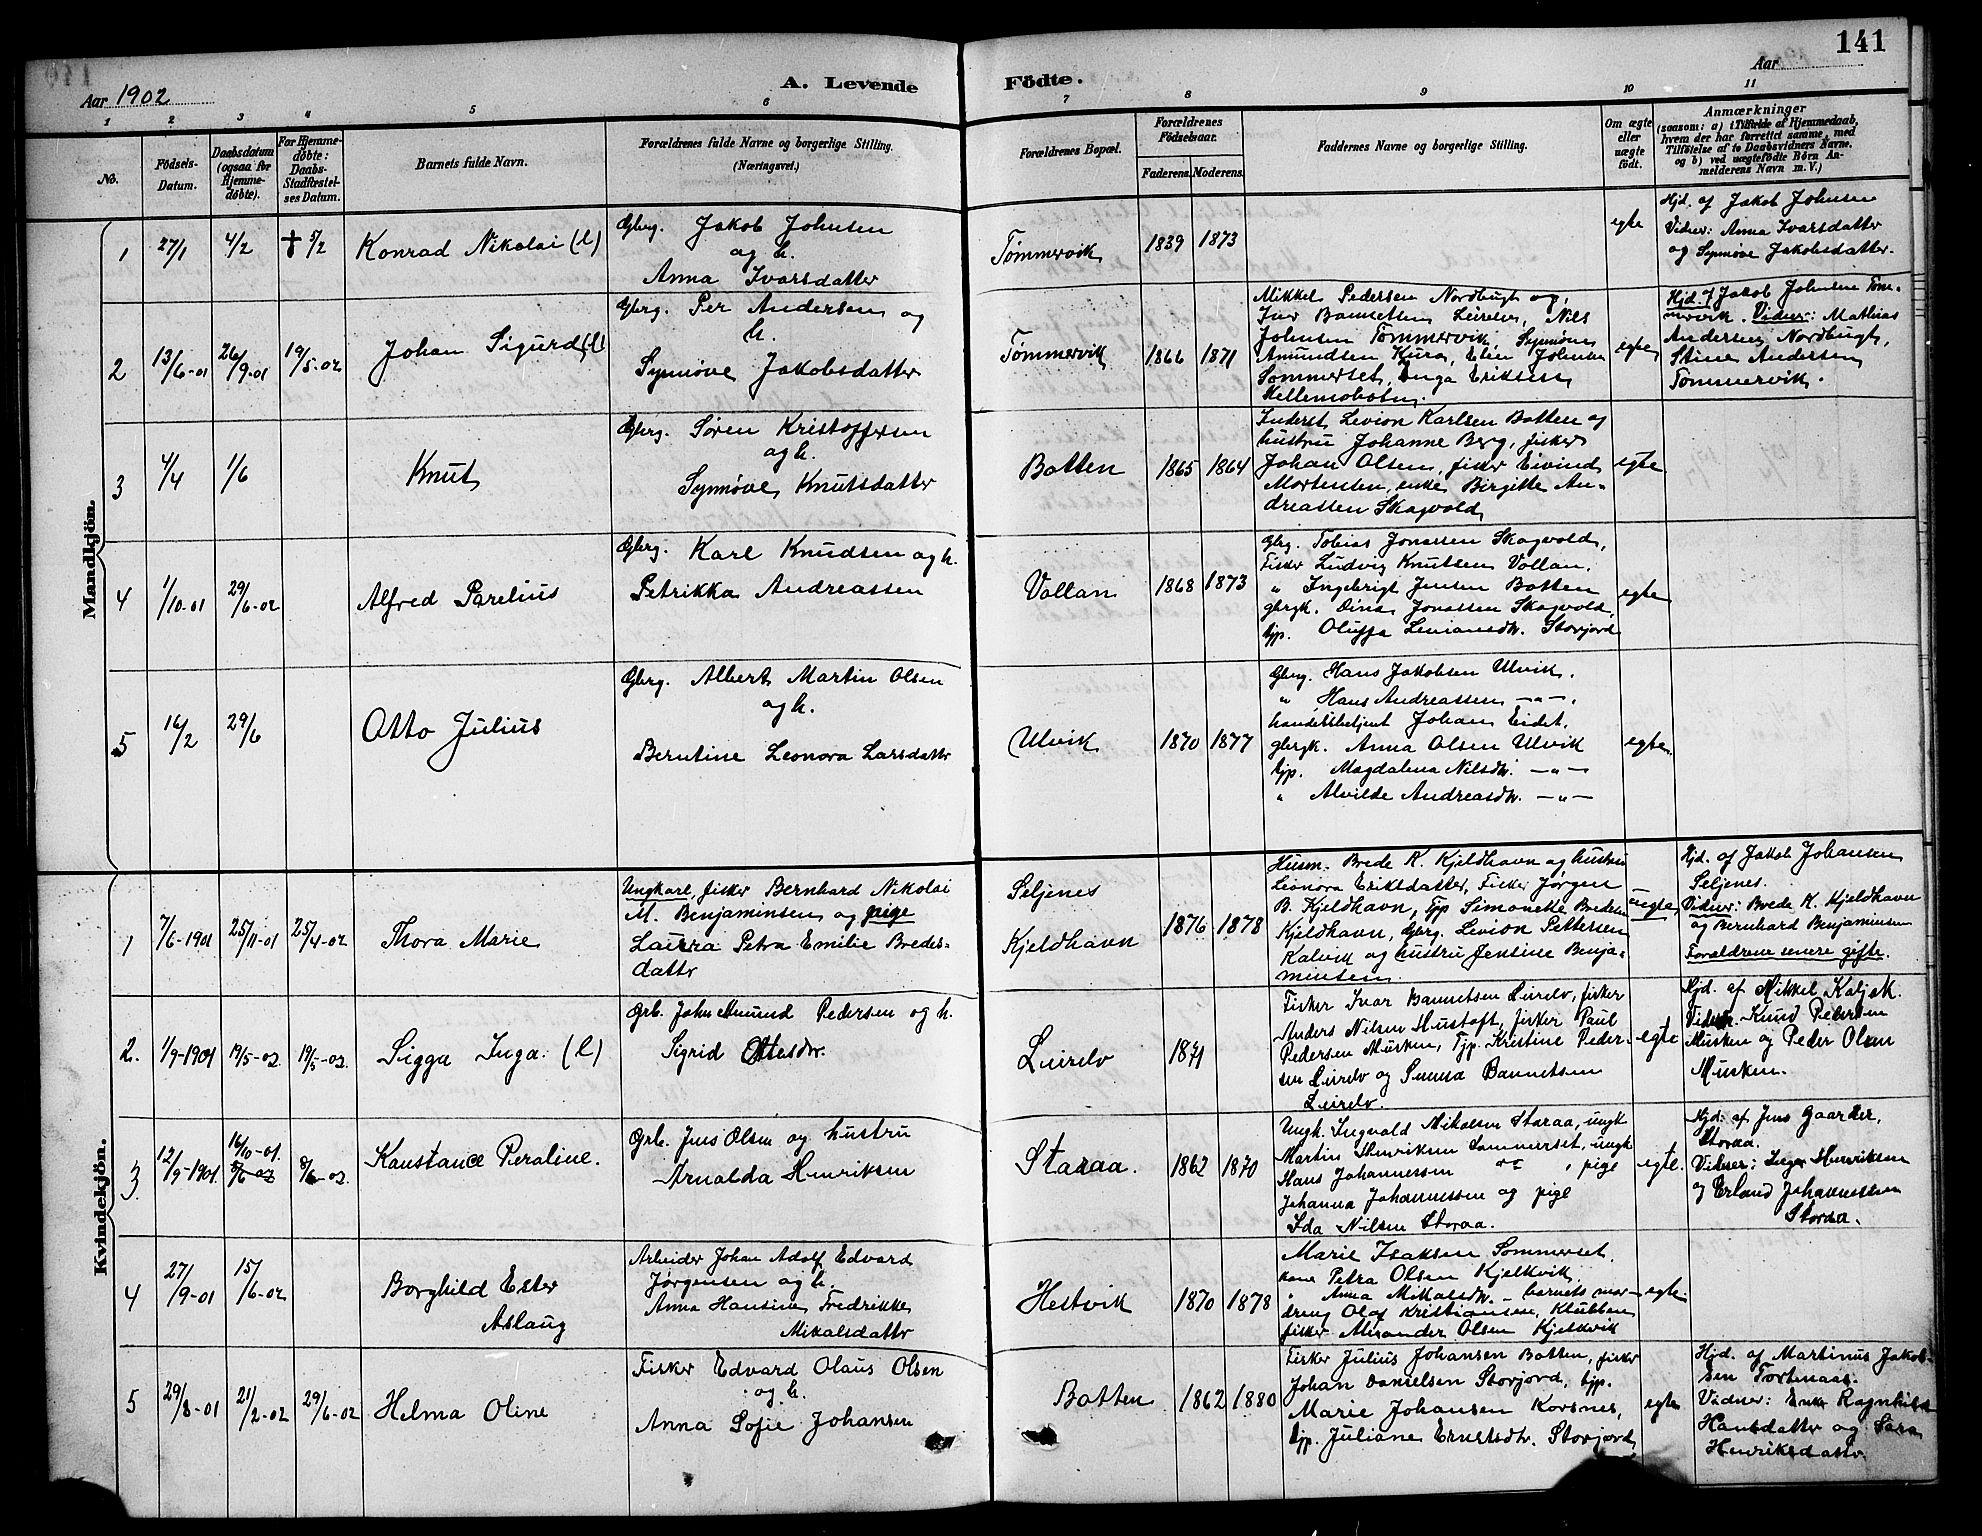 141
Aar 1902
A. Levende
Födte.
Aar
1 2 3 4 5 6 7 8 9 10 11
No.
Födsels-
Datum.
Daabsdatum
(ogsaa for
Hjemme-
døbte).
For Hjemme-
døbte:
Daabs-
Stadfæstel-
ses Datum.
Barnets fulde Navn.
Forældrenes fulde Navne og borgerlige Stilling.
(Næringsvei.)
Forældrenes Bopæl.
Forældrenes
Födselsaar.
Faderens. Moderens.
Faddernes Navne og borgerlige Stilling.
Om ægte
eller
uægte
født.
Anmærkninger
(saasom: a) i Tilfælde af Hjemmedaab,
hvem der har forrettet samme, med
Tilføielse af to Daabsvidners Navne.
og b) ved uægtefødte Börn An-
melderens Navn m. V.)
Mandkjön.
1 27/1 4/2 † 5/2 Konrad Nikolai (l)
Gbrg. Jakob Johnsen
og h.
Anna Ivarsdatter
Tømmervik 1839 1873 egte
Hjd. af Jakob Johnsen
Vidner: Anna Ivarsdatter
og Synnøve Jakobsdatter.
2 13/6-01 26/9-01 19/5-02 Johan Sigurd (l)
Gbrg. Per Andersen og
h.
Synnøve Jakobsdatter
Tømmervik 1866 1871
Mikkel Pedersen Nordbugt og
Ivar Bannetsen Leirelv, Nils
Johnsen Tømmervik, Synnøve
Amundsen Kura, Elen Johnsen
Sommerset, Inga Eriksen
Hellemobotn.
egte
Hjd. af Jakob Johnsen Tøm-
mervik. Vidner: Mathias
Andersen Nordbugt,
Stine Andersen
Tømmervik.
3 4/4 1/6 Knut
Gbrg. Søren Kristoffersen
og h.
Synnøve Knutsdatter
Botten 1865 1864
Inderst Levion Karlsen Botten og
hustru Johanne Berg, fisker
Johan Olsen, fisker Eivind
Mortensen, enke Birgitte An-
dreassen Skagvold
egte
4 1/10-01 29/6-02 Alfred Parelius
Gbrg. Karl Knudsen og h.
Petrikka Andreassen
Vollan 1868 1873
Gbrg. Tobias Jonassen Skagvold,
Fisker Ludvig Knutsen Vollan,
" Ingebrigt Jensen Botten
gbrgk. Dina Jonassen Skagvold,
tjp. Oluffa Levionsdtr. Storjord
egte
5 16/2 29/6 Otto Julius
Gbrg. Albert Martin Olsen
og h.
Berntine Leonora Larsdattr
Ulvik 1870 1877
Gbrg. Hans Jakobsen Ulvik.
" Hans Andreassen — " —.
handelsbetjent Johan Eidet.
gbrgk. Anna Olsen Ulvik
tjp. Magdalena Nilsdtr. — " —
" Alvilde Andreasdtr. — " —
egte.
Kvindekjön.
1 7/6-1901 25/11-01 25/4-02 Thora Marie
Ungkarl, fisker Bernhard Nikolai
M. Benjaminsen og pige
Laura Petra Emilie Bredes-
dattr
Seljenes
Kjeldhavn 1876 1878
Husm. Brede K. Kjeldhavn og hustru
Leonora Eriksdatter, Fisker Jørgen
B. Kjeldhavn, Tjp Simonette Bredesen
Kjeldhavn, Gbrg. Levion Pettersen
Kalvik og hustru Jensine Benja-
minsen.
uegte
Hjd. af Jakob Johansen
Seljenes.
Vidner: Brede K. Kjeldhavn
og Bernhard Benjaminsen
Forældrene senere gifte.
2. 1/9-1901 19/5-02 19/5-02. Sigga Inga. (l)
Grb. John Amund Pedersen og h.
Sigrid Ottesdtr.
Leirelv 1871
Fisker Ivar Bannetsen Leirelv, fisker
Anders Nilsen Mustoft, fisker Paul
Pedersen Musken, Tjp. Kristine Peder-
sen Leirelv og Bannetsen
Leirelv.
egte
Hjd. af Mikkel
Vidner. Knud Pedersen
Musken og Peder Olsen
Musken.
3 12/9-1901. 16/10-01. 8/6-02 8/6-02. Konstance Peraline.
Grb. Jens Olsen og hustru
Arnalda Henriksen
Storaa. 1862 1870
Ungk. Ingvald Mikalsen Storaa, ungk
Martin Henriksen Sommerset, ungk
Hans Johannessen pige
Johanna Johannessen og pige
Ida Nilsen Storaa.
egte.
Hjd. af Jens Gaarder,
Storaa.
Vidner: Inger Henriksen
og Erland Johannessen
Storaa.
4 27/9-01 15/6-02 Borghild Ester
Aslaug
Arbeider Johan Adolf Edvard
Jørgensen og h.
Anna Hansine Fredrikke
Mikalsdattr
Hestvik 1870 1878
Marie Isaksen Sommerset.
kone Petra Olsen Kjelkvik,
" Anna Mikalsdtr. — barnets mor —
dreng Olaf Kristiansen, Klubben
fisker Alexander Olsen Kjelkvik
egte.
5 29/8-01 21/2-02 29/6-02 Helma Oline
Fisker Edvard Olaus Olsen
og h.
Anna Sofie Johansen
Botten 1862 1880
Fisker Julius Johansen Botten, fisker
Johan Danielsen Storjord, tjp.
Marie Johansen Korsnes,
tjp. Juliane Ernetsdtr. Storjord
egte
Hjd. af Martinus Jakob-
sen Tortenaas.
Vidner: Enke Ragnhild
Hansdattr og Sara
Henriksdattr